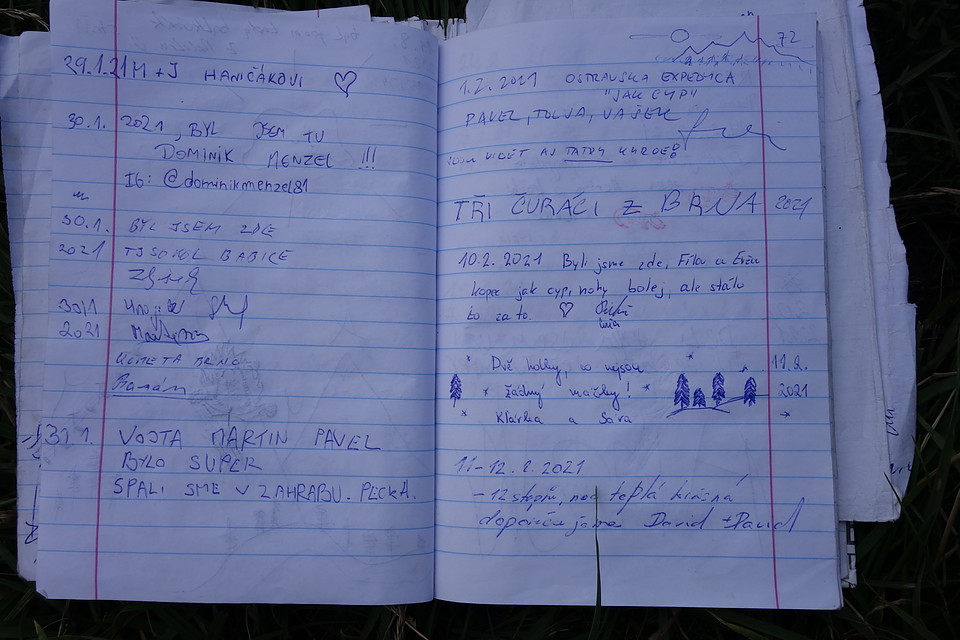 29.1.21 M + J HANIČÁKOVI
30.1. 2021, BYL JSEM TU
DOMINIK MENZEL !!!
IG: @dominikmenzel81
30.1. BYL JSEM ZDE
2021 TJ SOKOL BABICE
30/1
2021
KOMETA BRNO
Roman
31.1. VOJTA MARTIN PAVEL
BYLO SUPER
SPALI SME V ZAHRABU. PECKA.
72
1.2. 2021 OSTRAVSKA EXPEDYCA
"JAK CYP"
PAVEL, TOLJA, VAŠEK
VIDĚT AJ TATRY KURDE!
TŘI ČURÁCI Z BRNA 2021
10.2. 2021 Byli jsme zde, Filu a Evža
kopec jak cyp, nohy bolej, ale stálo
to za to.
Dvě holky, co nejsou 11.2.
žádný mačky! 2021
Klárka a Sára
11-12.2. 2021
-12 stupňů, noc teplá krásná
doporučujeme David + David